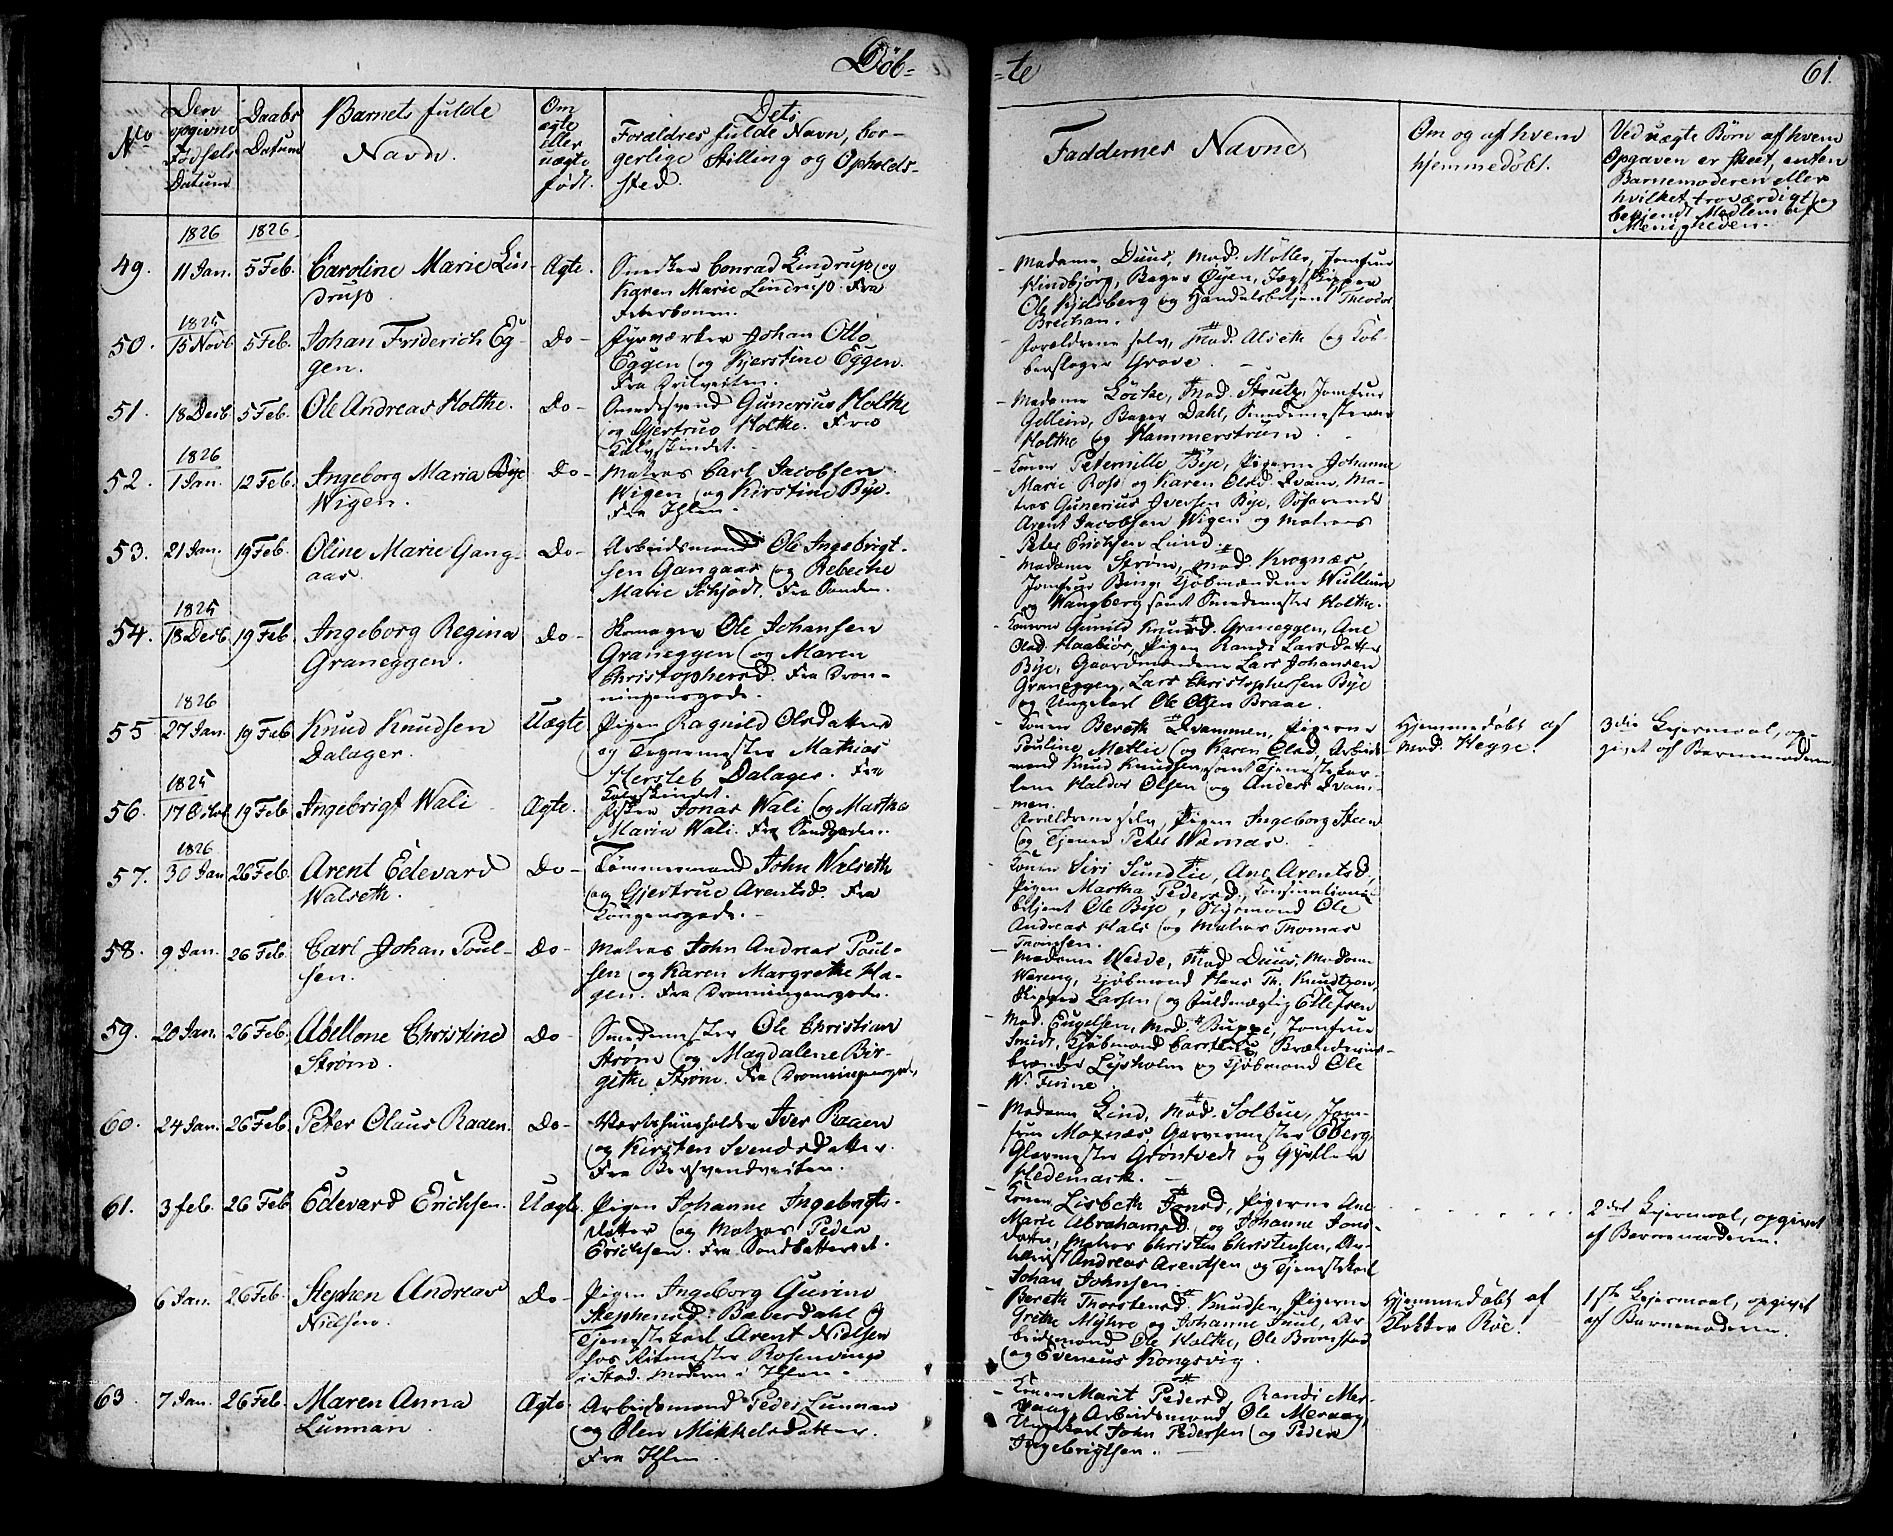 Döb-
-te
61.
No
Den opgivne Födsels Datum
Daabs Datum
Barnets fulde Navn.
Om ægte eller uægte födt.
Dets Forældres fulde Navn, borgerlige Stilling og Opholdssted.
Faddernes Navne
Om og af hvem hjemmedöbt.
Ved uægte Börn af hvem Opgaven er skeet, enten Barnemoderen eller hvilket troværdigt og bekjendt Medlem af Menigheden.
1826
1826
49. 11 Jan. 5 Feb. Caroline Marie Lin- Ægte.
drup.
Snedker Conrad Lindrup og
Karen Marie Lindrup. Fra
- Madame Duus, Mad. Möller, Jomfrue
Kindbjörg, Bager Öyen,
Ole Kjelsberg og Handelsbetjent Theodor
Brechan.
1825
50. 15 Novb 5 Feb. Johan Friderich Eg- Do-
gen.
Fyrværker Johan Otto
Eggen og Kjerstine Eggen.
- Forældrene selv, Mad. Alseth og Kob-
berslager Grove.
51. 18 Decb 5 Feb. Ole Andreas Holthe. Do-
Smedesvend Gunerius Holthe
og Gjertrud Holthe. Fra
Kalvskindet.
- Madame Löche, Mad. Strutz, Jomfrue
Bager Dahl, Smedemesterne
Holthe og Hammerström.
1826
52. 1 Jan. 12 Feb. Ingeborg Maria Bÿe Do-
Wigen.
Matros Carl Jacobsen
Wigen og Kirstine Bÿe.
Fra Ihlen.
- Konen Peternille Bÿe, Pigerne Johanne
Marie Ross og Karen Olsd. Qvam, Ma-
tros Gunerius Iversen Bÿe, Söfarende
Arent Jacobsen Wigen og Matros
Peter Erichsen Lund.
53. 21 Jan. 19 Feb. Oline Marie Gang- Do-
aas.
Arbeidsmand Ole Ingebrigt-
sen Gangaas og Rebecke
Marie Schjödt. Fra Sanden.
- Madame Ström, Mad. Krognæs,
Jomfrue Bing, Kjöbmændene Wullum
og Wangberg samt Smedemester Holthe.
1825
54. 18 Decb. 19 Feb Ingeborg Regina Do-
Graneggen.
Skomager Ole Johansen
Graneggen og Maren
Christophersd. Fra Dron-
ningensgade.
- Konerne Gunild Knudsd. Graneggen, Ane
Olsd. Haabiör, Pigen Randi Larsdatter
Bÿe, Gaardmændene Lars Johansen
Graneggen, Lars Christophersen Bÿe
og Ungekarl Ole Olsen Braae.
1826
55 27 Jan. 19 Feb Knud Knudsen Uægte
Dalager.
Pigen Ragnild Olsdatter
og Tegnemester Mathias
Hersleb Dalager. Fra
Kalvskindet.
- Konen Bereth Qvammen, Pigerne
Pauline Methe og Karen Olsd, Arbeids-
mand Knud Knudsen, samt Tjenestekar-
lene Haldor Olsen og Anders Qvam-
men.
Hjemmedöbt af
Mad. Hegge.
3die Leiermaal, op-
givet af Barnemoderen
1825
56. 17 Octob 19 Feb Ingebrigt Wali Ægte.
Fisker Jonas Wali og Martha
Maria Wali. Fra Sandgaden.
- Forældrene selv, Pigen Ingeborg Steen
og Tjener Peter Wærnæs.
1826
57. 30 Jan 26 Feb. Arent Edevard Do-
Walseth.
Tömmermand John Walseth
og Gjertrue Arentsd. Fra
Kongensgade.-
- Konen Siri Sundlie, Ane Arentsd,
Pigen Martha Pedersd, Consumtions-
betjent Ole Bÿe, Styrmand Ole
Andreas Hals og Matros Thomas
Thomsen.
58. 9 Jan. 26 Feb. Carl Johan Poul- Do-
sen.
Matros John Andreas Poul-
sen og Karen Margrethe Ha-
gen. Fra Dronningensgade.
- Madame Weide, Mad Duus, Madame
Wareng, Kjöbmand Hans Th. Knudtzon,
Skipper Larsen og Fuldmægtig Ellefsen
59. 20 Jan. 26 Feb. Abellone Christine Do-
Ström.
Smedemester Ole Christian
Ström og Magdalene Bir-
githe Ström. Fra Dronningensgade,
- Mad. Engelsen, Mad. Buppe, Jomfrue
Smidt, Kjöbmand Carstens, Brændeviins-
brænder Lÿsholm og Kjöbmand Ole
W. Finne.
60. 24 Jan. 26 Feb. Peter Olaus Raaen. Do-
Værtshuusholder Iver Raaen
og Kirsten Svendsdatter.
Fra Bersvendveiten.
- Madame Lind, Mad. Solbue, Jom-
frue Moxnæs, Garvermester Eberg
Glarmester Gröntvedt og Gjörtler
Hedemark.
61. 3 feb. 26 Feb. Edevard Erichsen. Uægte.
Pigen Johanne Ingebrigts-
datter og Matros Peder
Erichsen. Fra Sandbatteriet.
- Konen Lisbeth Jonsd, Pigerne Ane
Marie Abrahamsd. og Johanne Jons-
datter, Matros Christen Christensen, Ar-
tillerist Andreas Arentsen og Tjenestekarl
Johan Johnsen.
2det Leiermaal, opgivet
af Barnemoderen.
6 Jan. 26 Feb. Stephen Andreas Do-
Nielsen.
Pigen Ingeborg Gurine
Stephensd. Baberdahl og
Tjenestekarl Arent Nielsen
hos Ritmester Rosenvinge
i Stod. Modern i Ihlen.
- Bereth Thorstensd. Knudsen, Pigerne
Grethe Mÿhre og Johanne Juul, Ar-
beidsmænd Ole Holthe, Ole Bromstad
og Eveneus Kongsvig.
Hjemmedöbt af
Klokker Röe.
1ste Leiermaal, opgivet
af Barnemoderen.
63 7 Jan. 26 Feb. Maren Anna Ægte.
Lunman.
Arbeidsmand Peder Lunman
og Olen Mikkelsdatter.
Fra Ihlen.
- Konen Marit Pedersd, Randi Mer-
aag, Arbeidsmand Ole Meraag,
Ungekarl John Pedersen og Peder
Ingebrigtsen.